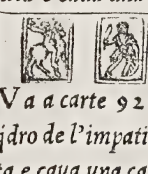 Va a carte 92
idro de l'impati
ta e caua una ca